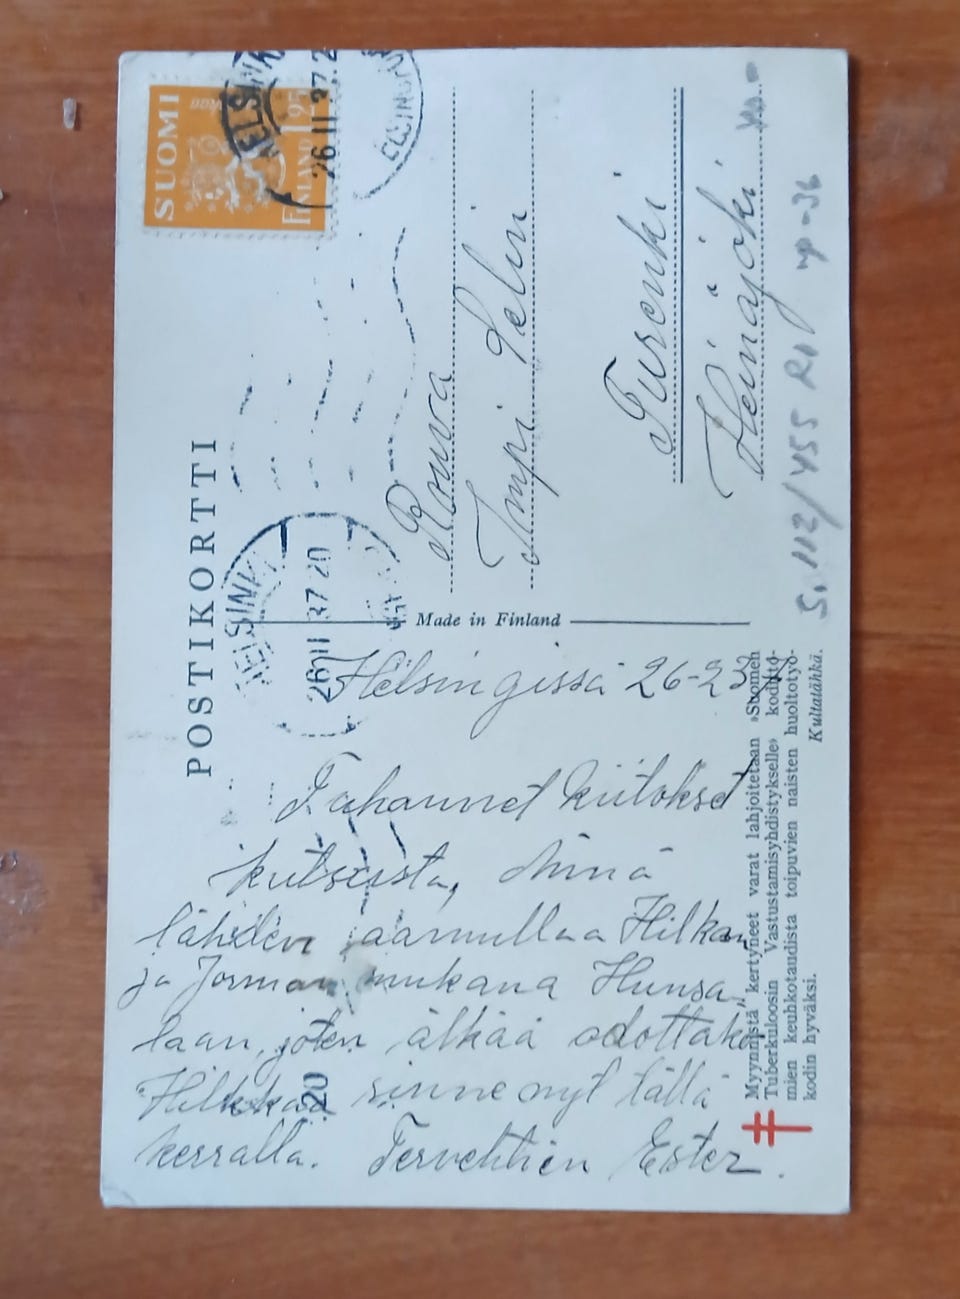 POSTIKORTTI
SUOMI
FINLAND 1 25
HELSINKI
26 II 37.2
HELSINKI
26 II 37 20
20
Made in Finland
Rouva
Impi Selin
Turenki
Heinäjoki
S. 112/455 np -36
Helsingissä 26-2 37
Tuhannet kiitokset
kutsusta, Minä
lähden aamullaa Hilkan
ja Jorman mukana Hunsa-
laan, joten älkää odottako
Hilkkaa sinne nyt tällä
kerralla. Tervehtien Ester.
Myynnistä kertyneet varat lahjoitetaan »Suomen
Tuberkuloosin Vastustamisyhdistykselle» kodittö-
mien keuhkotaudista toipuvien naisten huoltotyö-
kodin hyväksi.
Kultatähkä.